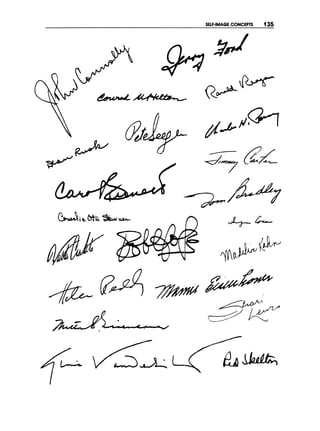 SELF-IMAGE CONCEPTS 135
John Connally
Jerry Ford
Conrad N Hilton
Ronald Reagan
Dean Rusk
Pete Seeger
Charles H. Percy
Jimmy Carter
Carol Burnett
Tom Bradley
Cornelia Otis Skinner
Bob Hope
Madeline Kahn
Helen Reddy
Mamie Eisenhower
Shari Lewis
Milton S. Eisenhower
Gloria Vanderbilt
Red Skelton